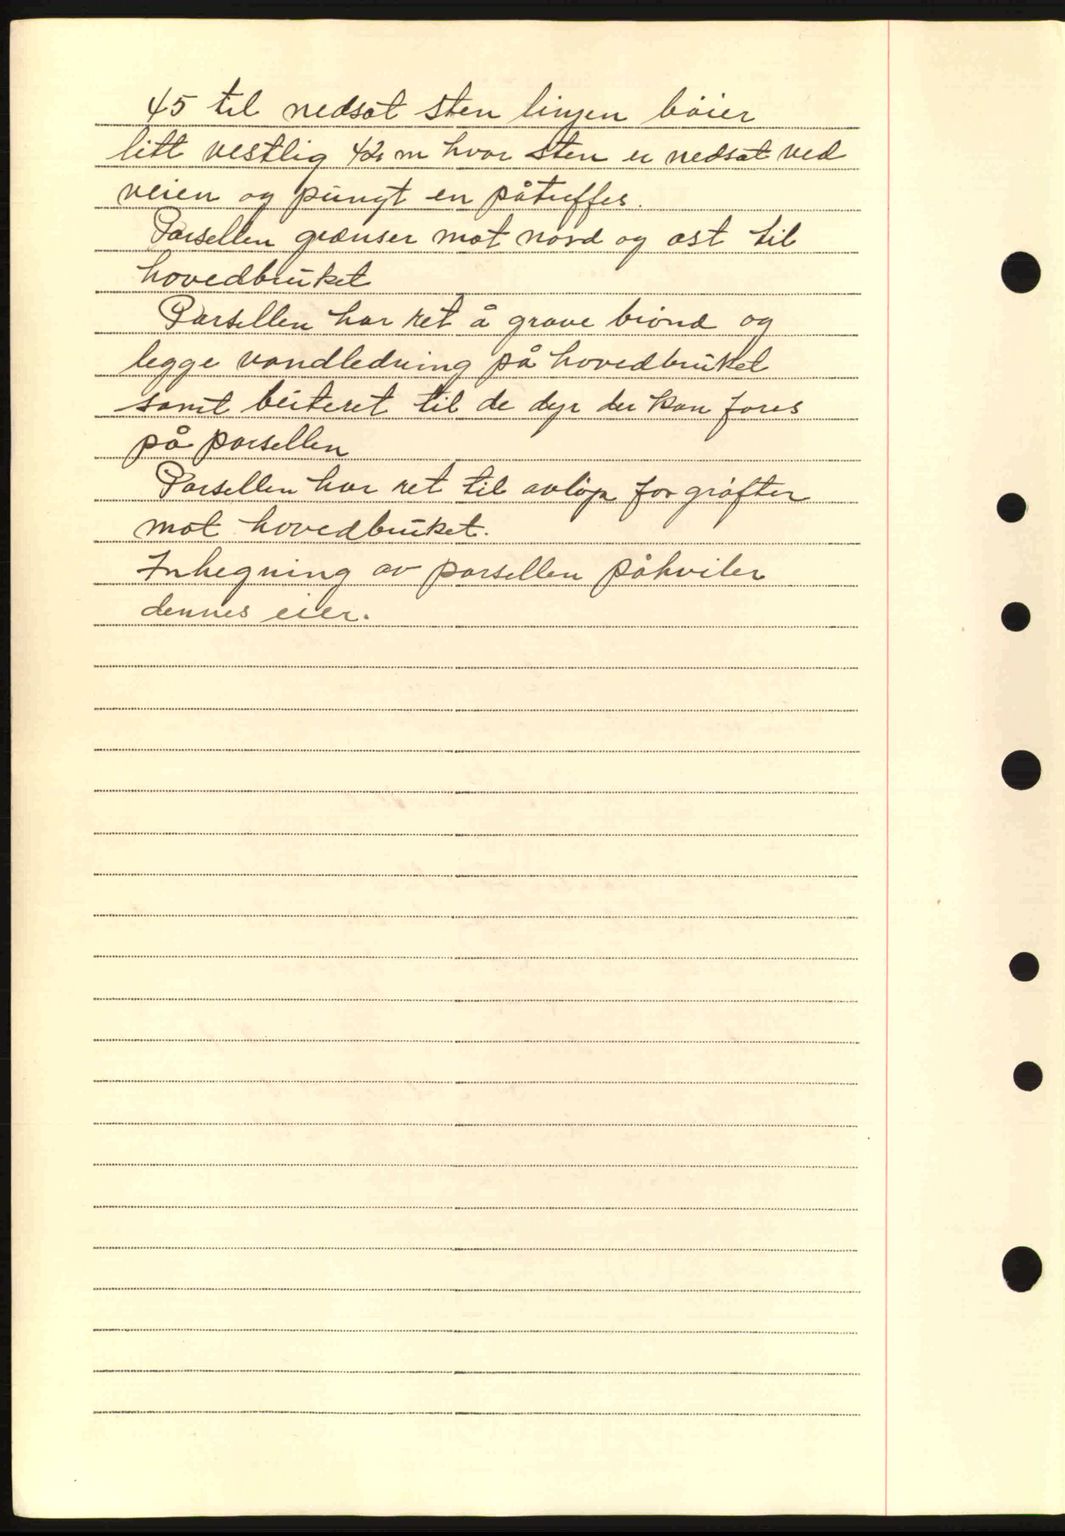 45 til nedsat sten linjen bøier
litt vestlig 42 m hvor sten er nedsat ved
veien og pungt en påtreffes.
Parsellen grænser mot nord og øst til
hovedbruket
Parsellen har ret å grave brønd og
legge vandledning på hovedbruket
samt beiteret til de dyr der kan fores
på parsellen
Parsellen har ret til avløp for grøfter
mot hovedbruket.
Inhegning av parsellen påhviler
dennes eier.